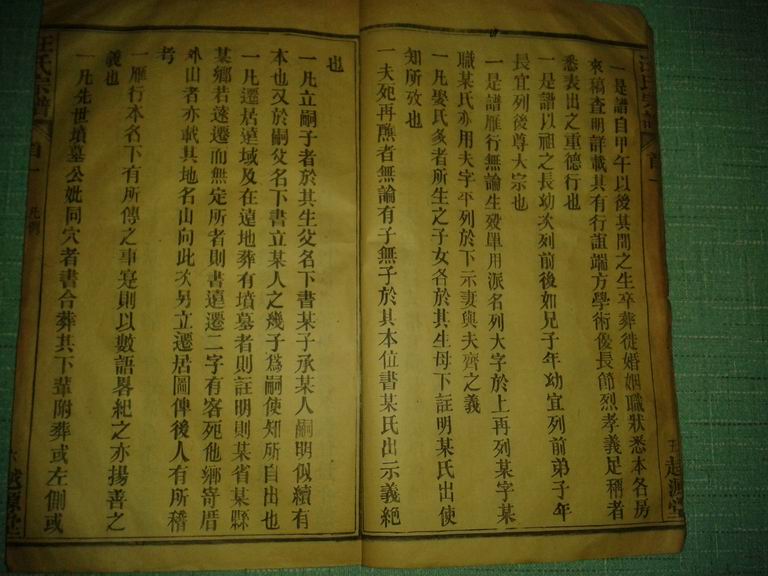 一是譜自甲午以後其間之生卒葬徙婚姻職狀悉本各房
來稿查明詳載其有行誼端方學術優長節烈孝義足稱者
悉表出之重德行也
一是譜以祖之長幼次列前後如兄子年幼宜列前弟子年
長宜列後尊大宗也
一是譜雁行無論生歿單用派名列大字於上再列某字某
職某氏亦用夫字平列於下示妻與夫齊之義
一凡娶氏多者所生之子女各於其生母下註明某氏出使
知所攷也
一夫死再醮者無論有子無子於其本位書某氏出示義絕
也
一凡立嗣子者於其生父名下書某子承某人嗣明似續有
本也又於嗣父名下書立某人之幾子爲嗣使知所自出也
一凡遷居遠域及在遠地葬有墳墓者則註明則某省某縣
某鄉若遠遷而無定所者則書遠遷二字有客死他鄉寄厝
外山者亦載其地名山向此次另立遷居圖俾後人有所稽
考
一雁行本名下有所傳之事寔則以數語畧紀之亦揚善之
義也
一凡先世墳墓公妣同穴者書合葬其下輩附葬或左側或
汪氏宗譜
首一
凡例
越源堂